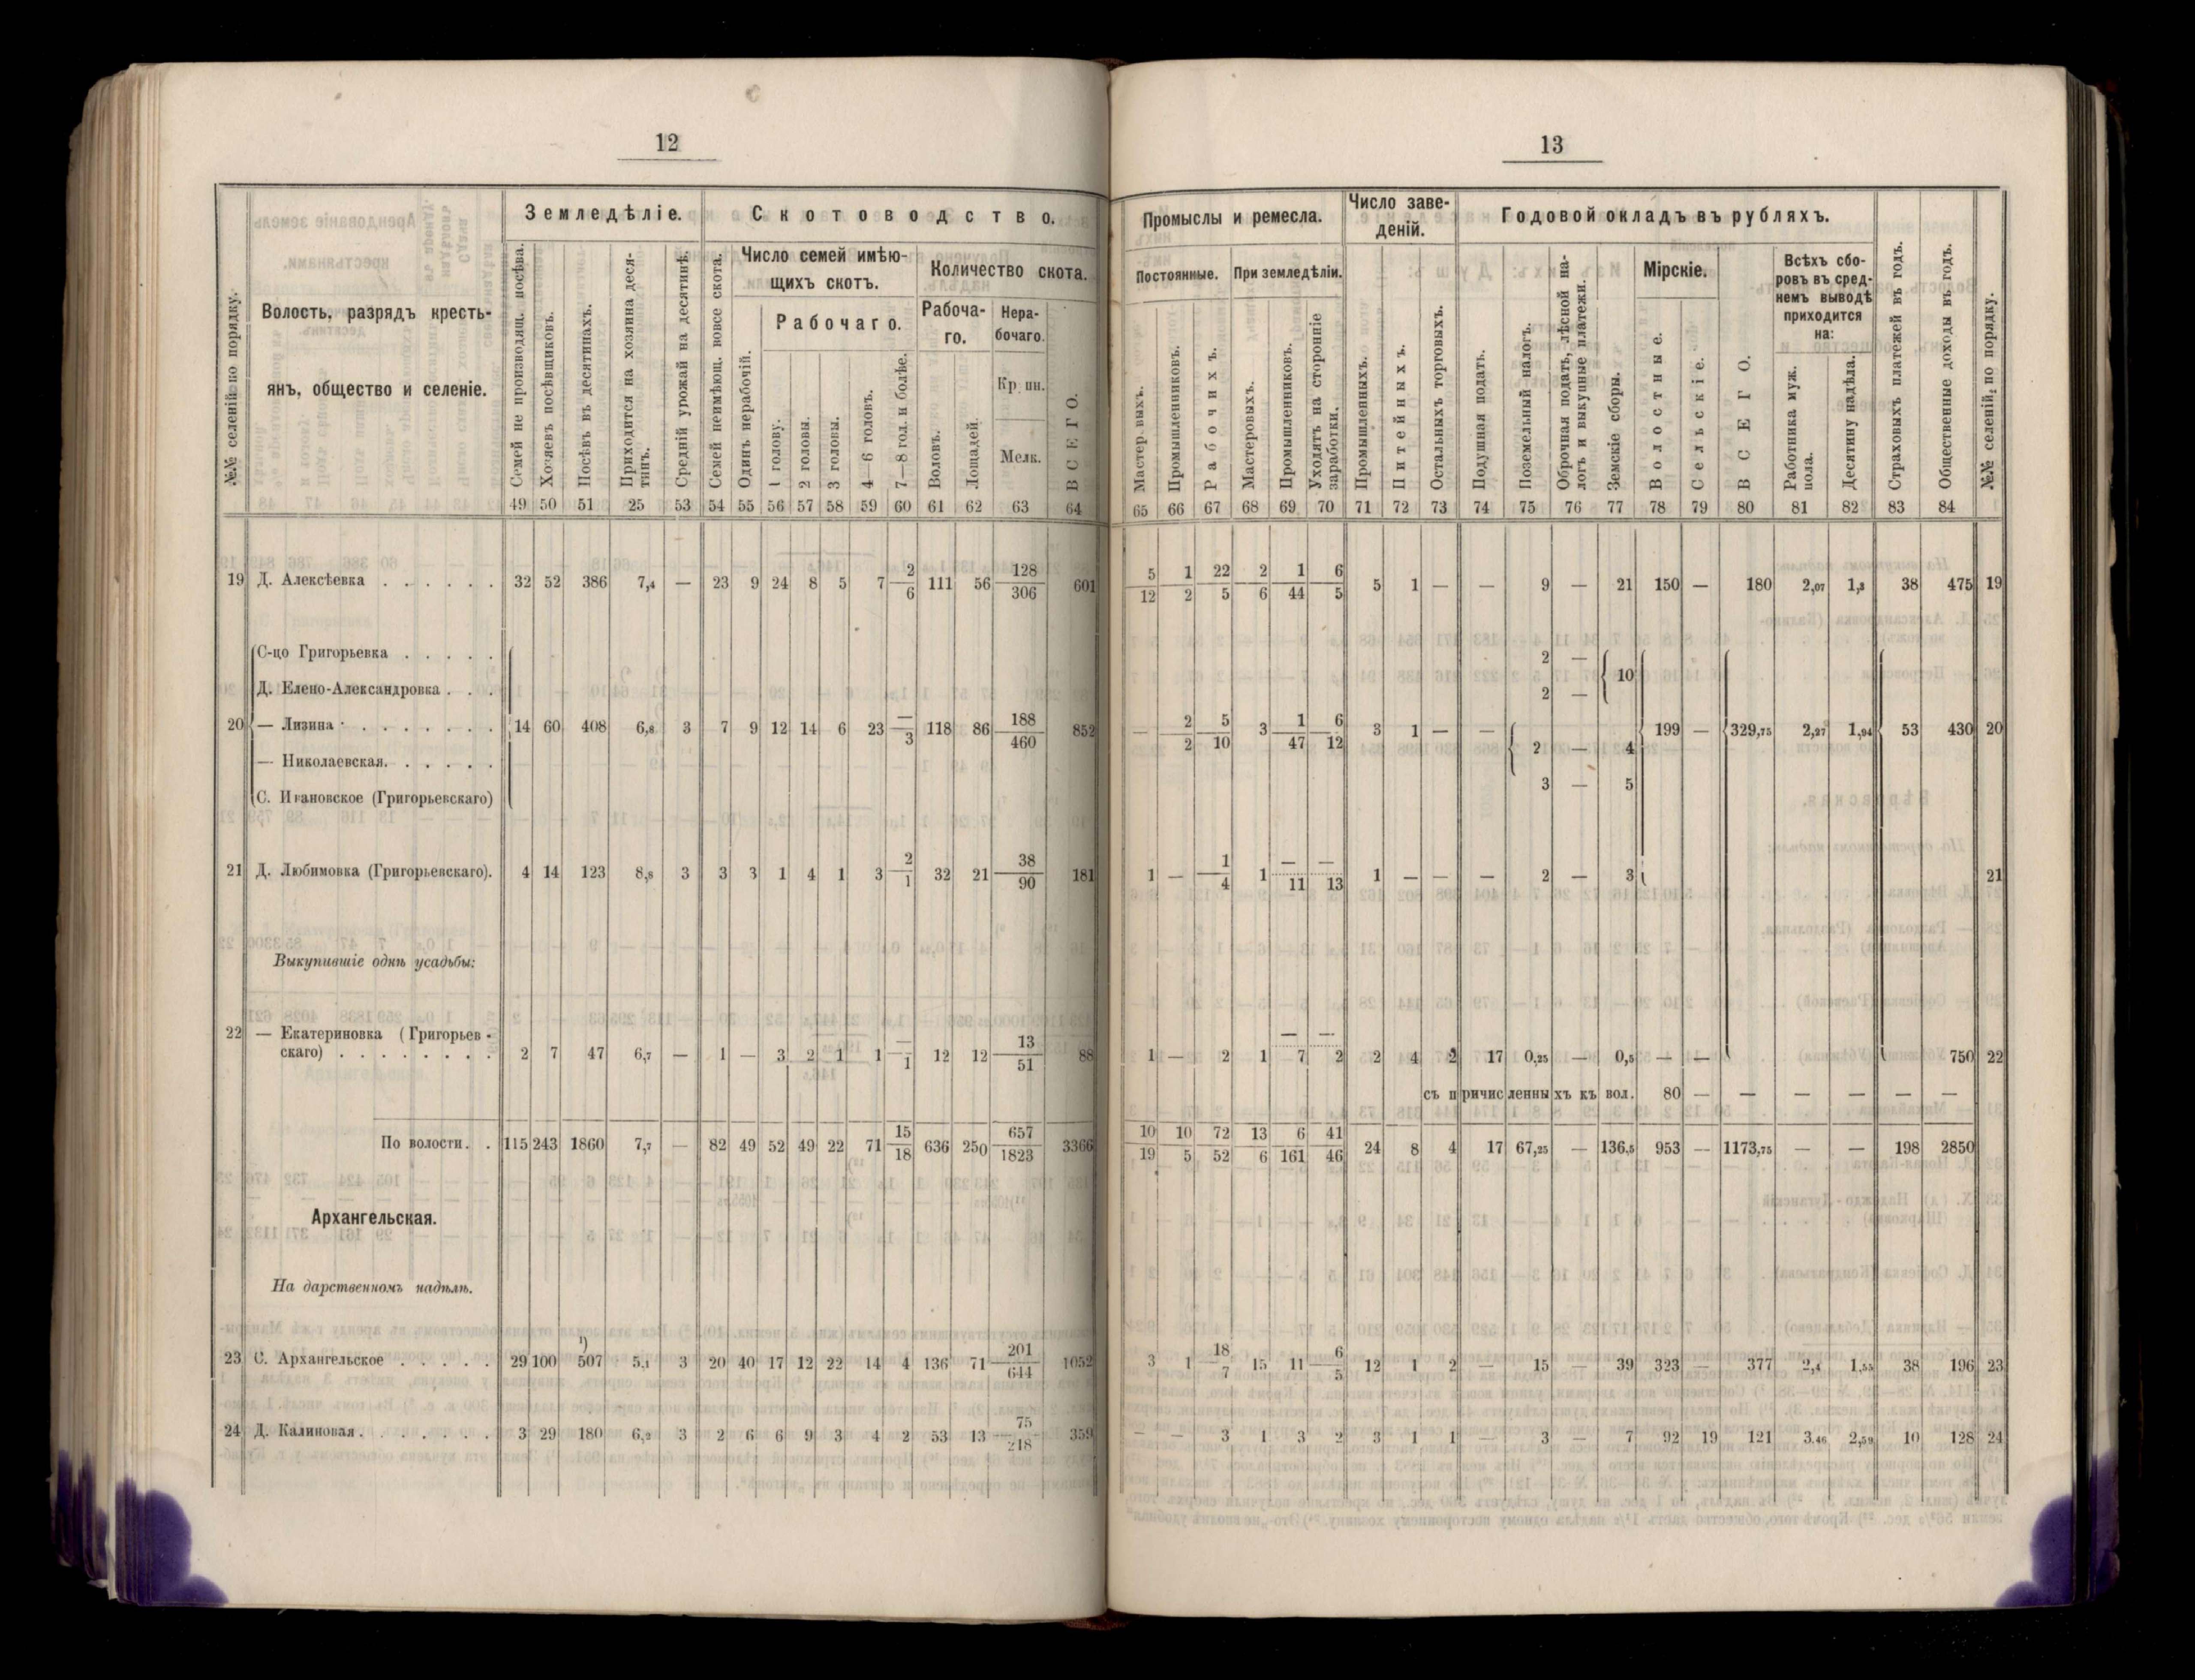 12
Земледѣліе. Скотоводство.
№№ селеній по порядку.
Волость, разрядъ кресть-
янъ, общество и селеніе.
Семей не производящ. посѣва.
Хозяевъ посѣвщиковъ.
Посѣвъ въ десятинахъ.
Приходится на хозяина деся-
тинъ.
Средній урожай на десятинѣ.
Семей неимѣющ. вовсе скота.
Число семей имѣю-
щихъ скотъ.
Одинъ нерабочій.
Рабочаго.
1 голову.
2 головы.
3 головы.
4—6 головъ.
7—8 гол. и болѣе.
Количество скота.
Рабоча-
го.
Воловъ.
Лошадей.
Нера-
бочаго.
Кр пн.
Мелк.
ВСЕГО.
49 50 51 25 53 54 55 56 57 58 59 60 61 62 63 64
19 Д. Алексѣевка . . . . . . 32 52 386 7,4 — 23 9 24 8 5 7 2/6 111 56 128/306 601
С-цо Григорьевка . . . . .
Д. Елено-Александровка . . .
20 — Лизина . . . . . . . 14 60 408 6,8 3 7 9 12 14 6 23 —/3 118 86 188/460 852
— Николаевская. . . . . .
С. Ивановское (Григорьевскаго)
21 Д. Любимовка (Григорьевскаго). 4 14 123 8,8 3 3 3 1 4 1 3 2/1 32 21 38/90 181
Выкупившіе однѣ усадьбы:
22 — Екатериновка (Григорьев-
скаго) . . . . . . . . 2 7 47 6,7 — 1 — 3 2 1 1 —/1 12 12 13/51 88
По волости. . 115 243 1860 7,7 — 82 49 52 49 22 71 15/18 636 250 657/1823 3366
Архангельская.
На дарственномъ надѣлѣ.
23 С. Архангельское . . . . . 29 100 ¹) 507 5,1 3 20 40 17 12 22 14 4 136 71 201/644 1052
24 Д. Калиновая . . . . . . . 3 29 180 6,2 3 2 6 6 9 3 4 2 53 13 75/218 359
13
Промыслы и ремесла. Число заве-
деній. Годовой окладъ въ рубляхъ.
Постоянные. При земледѣліи.
Мастеровыхъ.
Промышленниковъ.
Рабочихъ.
Мастеровыхъ.
Промышленниковъ.
Уходятъ на сторонніе
заработки.
Промышленныхъ.
Питейныхъ.
Остальныхъ торговыхъ.
Подушная подать.
Поземельный налогъ.
Оброчная подать, лѣсной на-
логъ и выкупные платежи.
Земскіе сборы.
Мірскіе.
Волостные.
Сельскіе.
ВСЕГО.
Всѣхъ сбо-
ровъ въ сред-
немъ выводѣ
приходится
на:
Работника муж.
пола.
Десятину надѣла.
Страховыхъ платежей въ годъ.
Общественные доходы въ годъ.
№№ селеній, по порядку.
65 66 67 68 69 70 71 72 73 74 75 76 77 78 79 80 81 82 83 84
5/12 1/2 22/5 2/6 1/44 6/5 5 1 — — 9 — 21 150 — 180 2,07 1,8 38 475 19
2 —
10
2 —
— 2/2 5/10 3 1/47 6/12 3 1 — — 199 — 329,75 2,27 1,94 53 430 20
2 — 4
3 — 5
1 — 1/4 1 —/11 —/13 1 — — — 2 — 3 21
1 — 2 1 —/7 —/2 2 4 2 17 0,25 — 0,5 — — 750 22
съ причисленныхъ къ вол. 80 — — — — — —
10/19 10/5 72/52 13/6 6/161 41/46 24 8 4 17 67,25 — 136,5 953 — 1173,75 — — 198 2850
3 1 18/7 15 11 6/5 12 1 2 — 15 — 39 323 — 377 2,4 1,55 38 196 23
— — 3 1 3 2 3 1 1 — 3 — 7 92 19 121 3,46 2,59 10 128 24